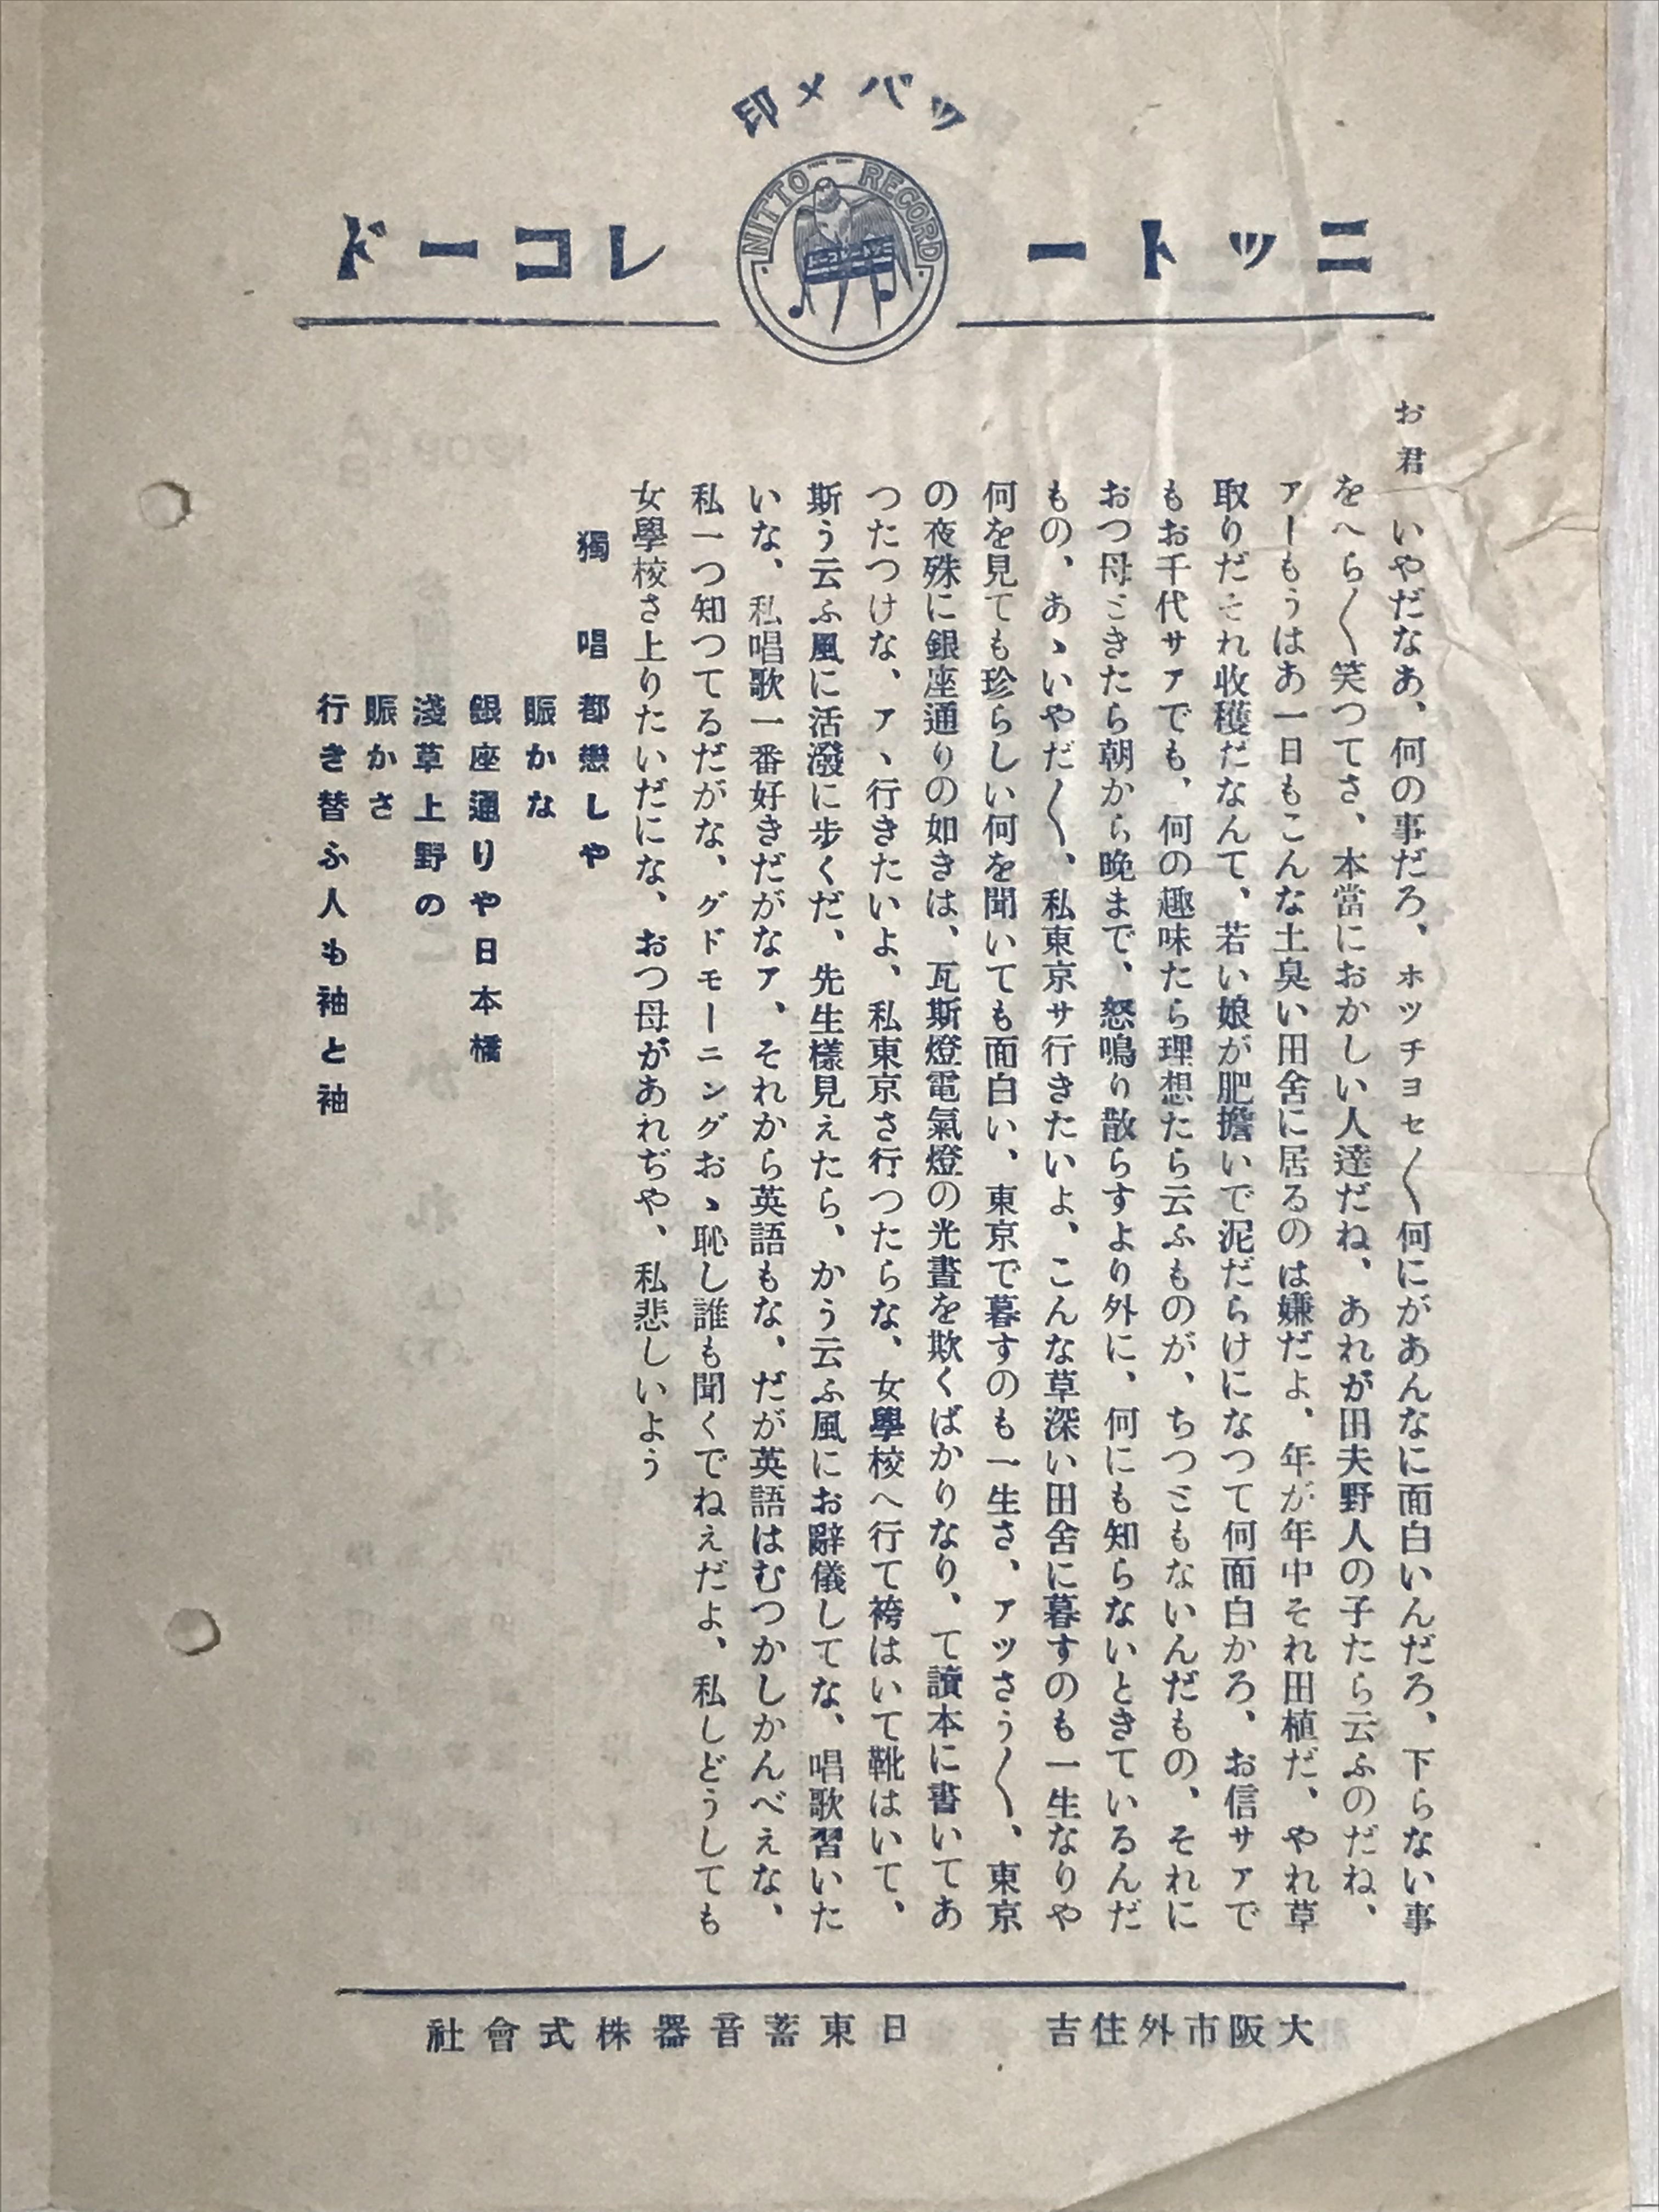 ツバメ印
NITTO RECORD
ニットーレコード
お君 いやだなあ、何の事だろ、ホツチヨセ〱何にがあんなに面白いんだろ、下らない事
をへら〱笑つてさ、本當におかしい人達だね、あれが田夫野人の子たら云ふのだね、
アーもうはあ一日もこんな土臭い田舎に居るのは嫌だよ、年が年中それ田植だ、やれ草
取りだそれ收穫だなんて、若い娘が肥擔いで泥だらけになつて何面白かろ、お信サアで
もお千代サアでも、何の趣味たら理想たら云ふものが、ちつともないんだもの、それに
おつ母ときたら朝から晩まで、怒鳴り散らすより外に、何にも知らないときているんだ
もの、あゝいやだ〱、私東京サ行きたいよ、こんな草深い田舎に暮すのも一生なりや
何を見ても珍らしい何を聞いても面白い、東京で暮すのも一生さ、アツさう〱、東京
の夜殊に銀座通りの如きは、瓦斯燈電氣燈の光晝を欺くばかりなり、て讀本に書いてあ
つたつけな、アヽ行きたいよ、私東京さ行つたらな、女學校へ行て袴はいて靴はいて、
斯う云ふ風に活潑に步くだ、先生樣見えたら、かう云ふ風にお辭儀してな、唱歌習いた
いな、私唱歌一番好きだがなア、それから英語もな、だが英語はむつかしかんべえな、
私一つ知つてるだがな、グドモーニングおゝ恥し誰も聞くでねえだよ、私しどうしても
女學校さ上りたいだにな、おつ母があれぢや、私悲しいよう
獨唱 都戀しや
賑かな
銀座通りや日本橋
淺草上野の
賑かさ
行き替ふ人も袖と袖
大阪市外住吉 日東蓄音器株式會社